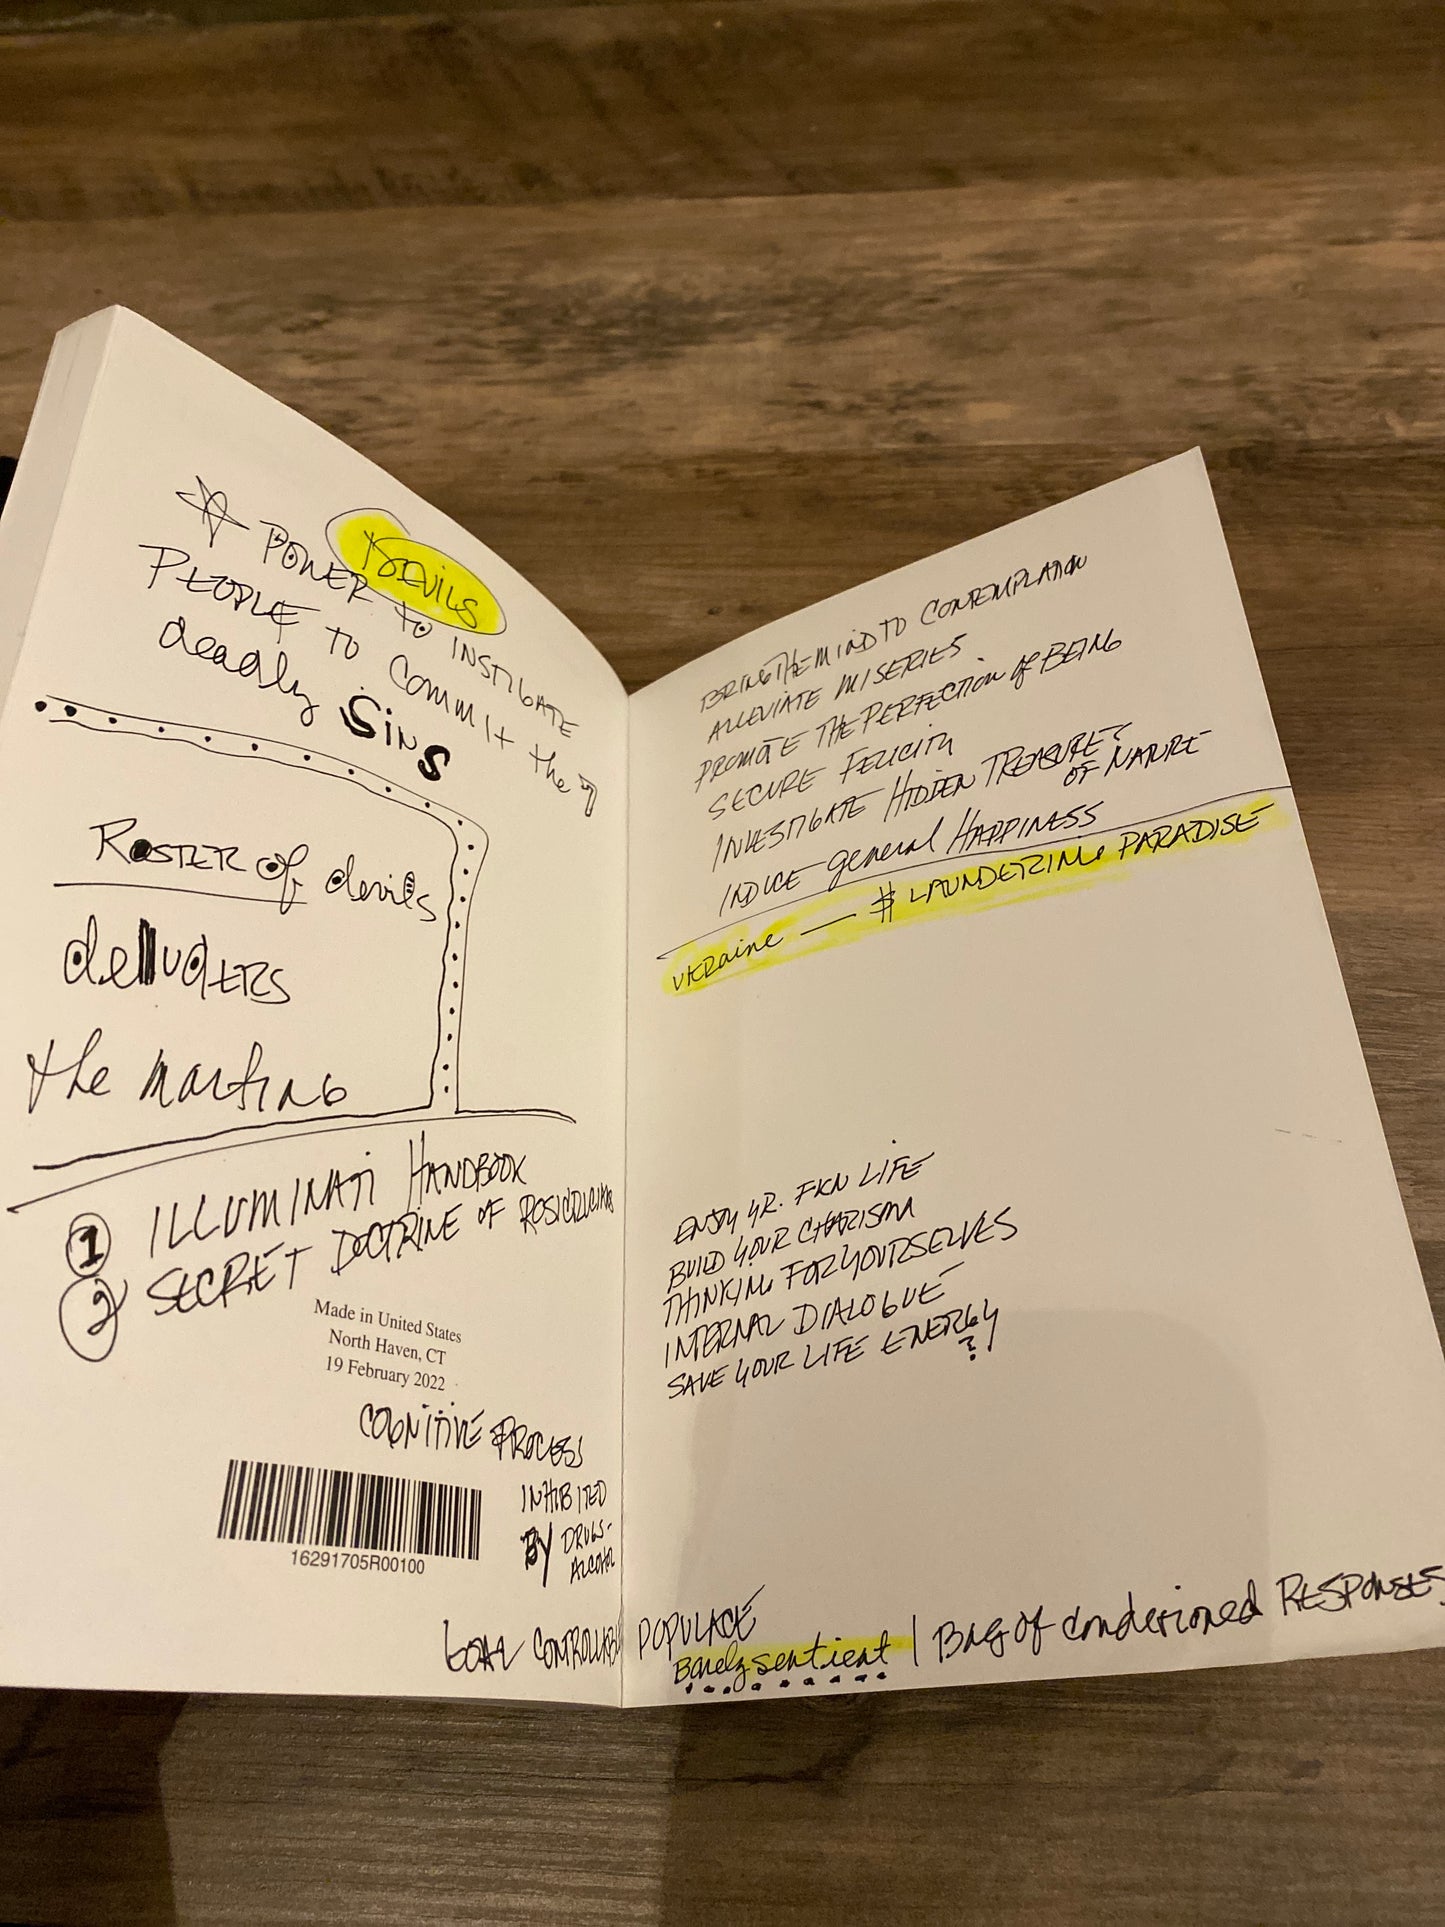 DEVILS
POWER to INSTIGATE
PEOPLE TO COMMIT the 7
deadly SiNS
ROSTER of devils
deluders
the
1 ILLUMINATi HANDBOOK
2 SECRET DOCTRINE OF ROSICRUCIANS
Made in United States
North Haven, CT
19 February 2022
COGNITIVE PROCESS
INHIBITED
BY DRUGS-
ALCOHOL
16291705R00100
GOAL CONTROLLABLE POPULACE
BRING THE MIND TO CONTEMPLATION
ALLEVIATE MISERIES
PROMOTE THE PERFECTION of BEING
SECURE FELICITY
INVESTIGATE HIDDEN TREASURES
OF NATURE
INDUCE general HAPPINESS
UKRaine — $ LAUNDERING PARADISE
ENJOY YR. FKN LIFE
BUILD YOUR CHARISMA
THINKING FOR YOURSELVES
INTERNAL DIALOGUE
SAVE YOUR LIFE ENERGY
?
Barely sentient | BAG OF conderioned RESPONSES